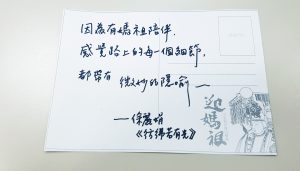 因為有媽祖陪伴.
感覺路上的每一個細節.
都帶有微妙的隱喻
——徐麗娟
《彷彿若有光》
迎媽祖